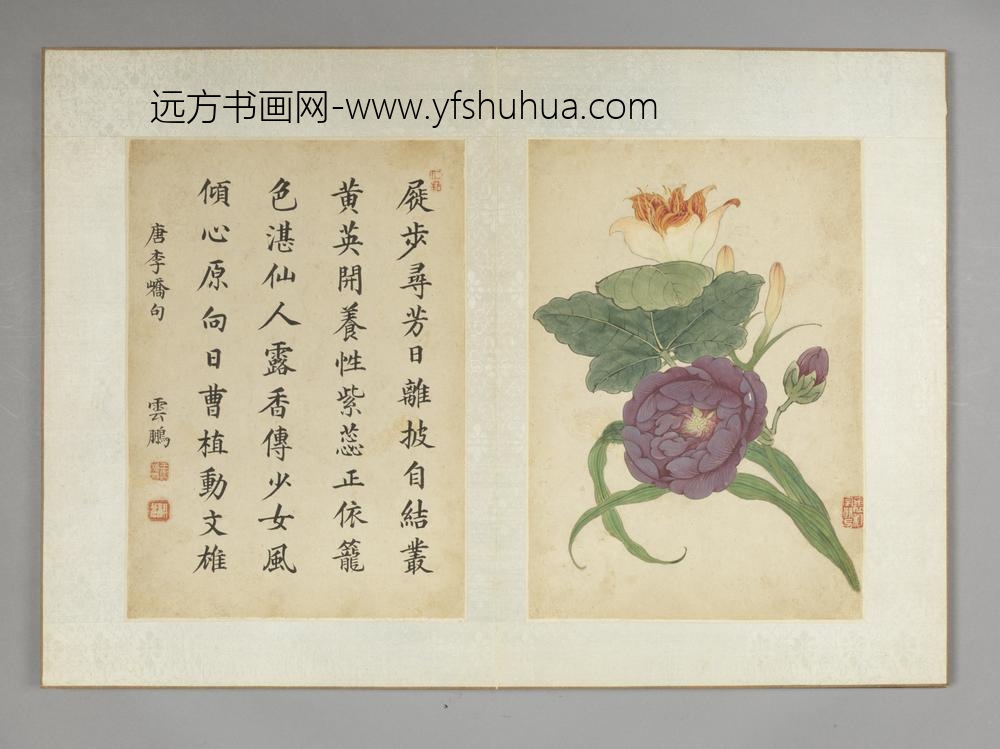 远方书画网-www.yfshuhua.com
屣步尋芳日離披自結叢
黄英開養性紫蕊正依籠
色湛仙人露香傳少女風
傾心原向日曹植動文雄
唐李嶠句
雲鵬